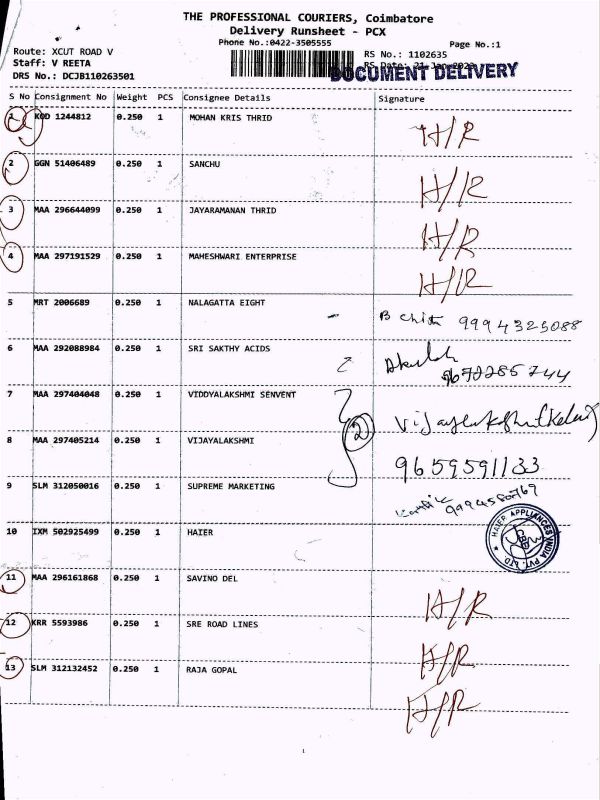 THE PROFESSIONAL COURIERS, Coimbatore
Delivery Runsheet - PCX
Phone No.:0422-3505555
Page No.:1
Route: XCUT ROAD V
RS No.: 1102635
Staff: V REETA
RS Date:
DOCUMENT DELIVERY
DRS No.: DCJB110263501
S No Consignment No Weight PCS Consignee Details Signature
1 KOD 1244812 0.250 1 MOHAN KRIS THRID H/R
2 GGN 51406489 0.250 1 SANCHU H/R
3 MAA 296644099 0.250 1 JAYARAMANAN THRID H/R
4 MAA 297191529 0.250 1 MAHESHWARI ENTERPRISE H/R
5 MRT 2006689 0.250 1 NALAGATTA EIGHT 9994325088
6 MAA 292088984 0.250 1 SRI SAKTHY ACIDS
7 MAA 297404048 0.250 1 VIDDYALAKSHMI SENVENT
2
8 MAA 297405214 0.250 1 VIJAYALAKSHMI 9659591133
9 SLM 312050016 0.250 1 SUPREME MARKETING
10 IXM 502925499 0.250 1 HAIER HAIER APPLIANCES INDIA PVT. LTD.
11 MAA 296161868 0.250 1 SAVINO DEL H/R
12 KRR 5593986 0.250 1 SRE ROAD LINES H/R
13 SLM 312132452 0.250 1 RAJA GOPAL H/R
1